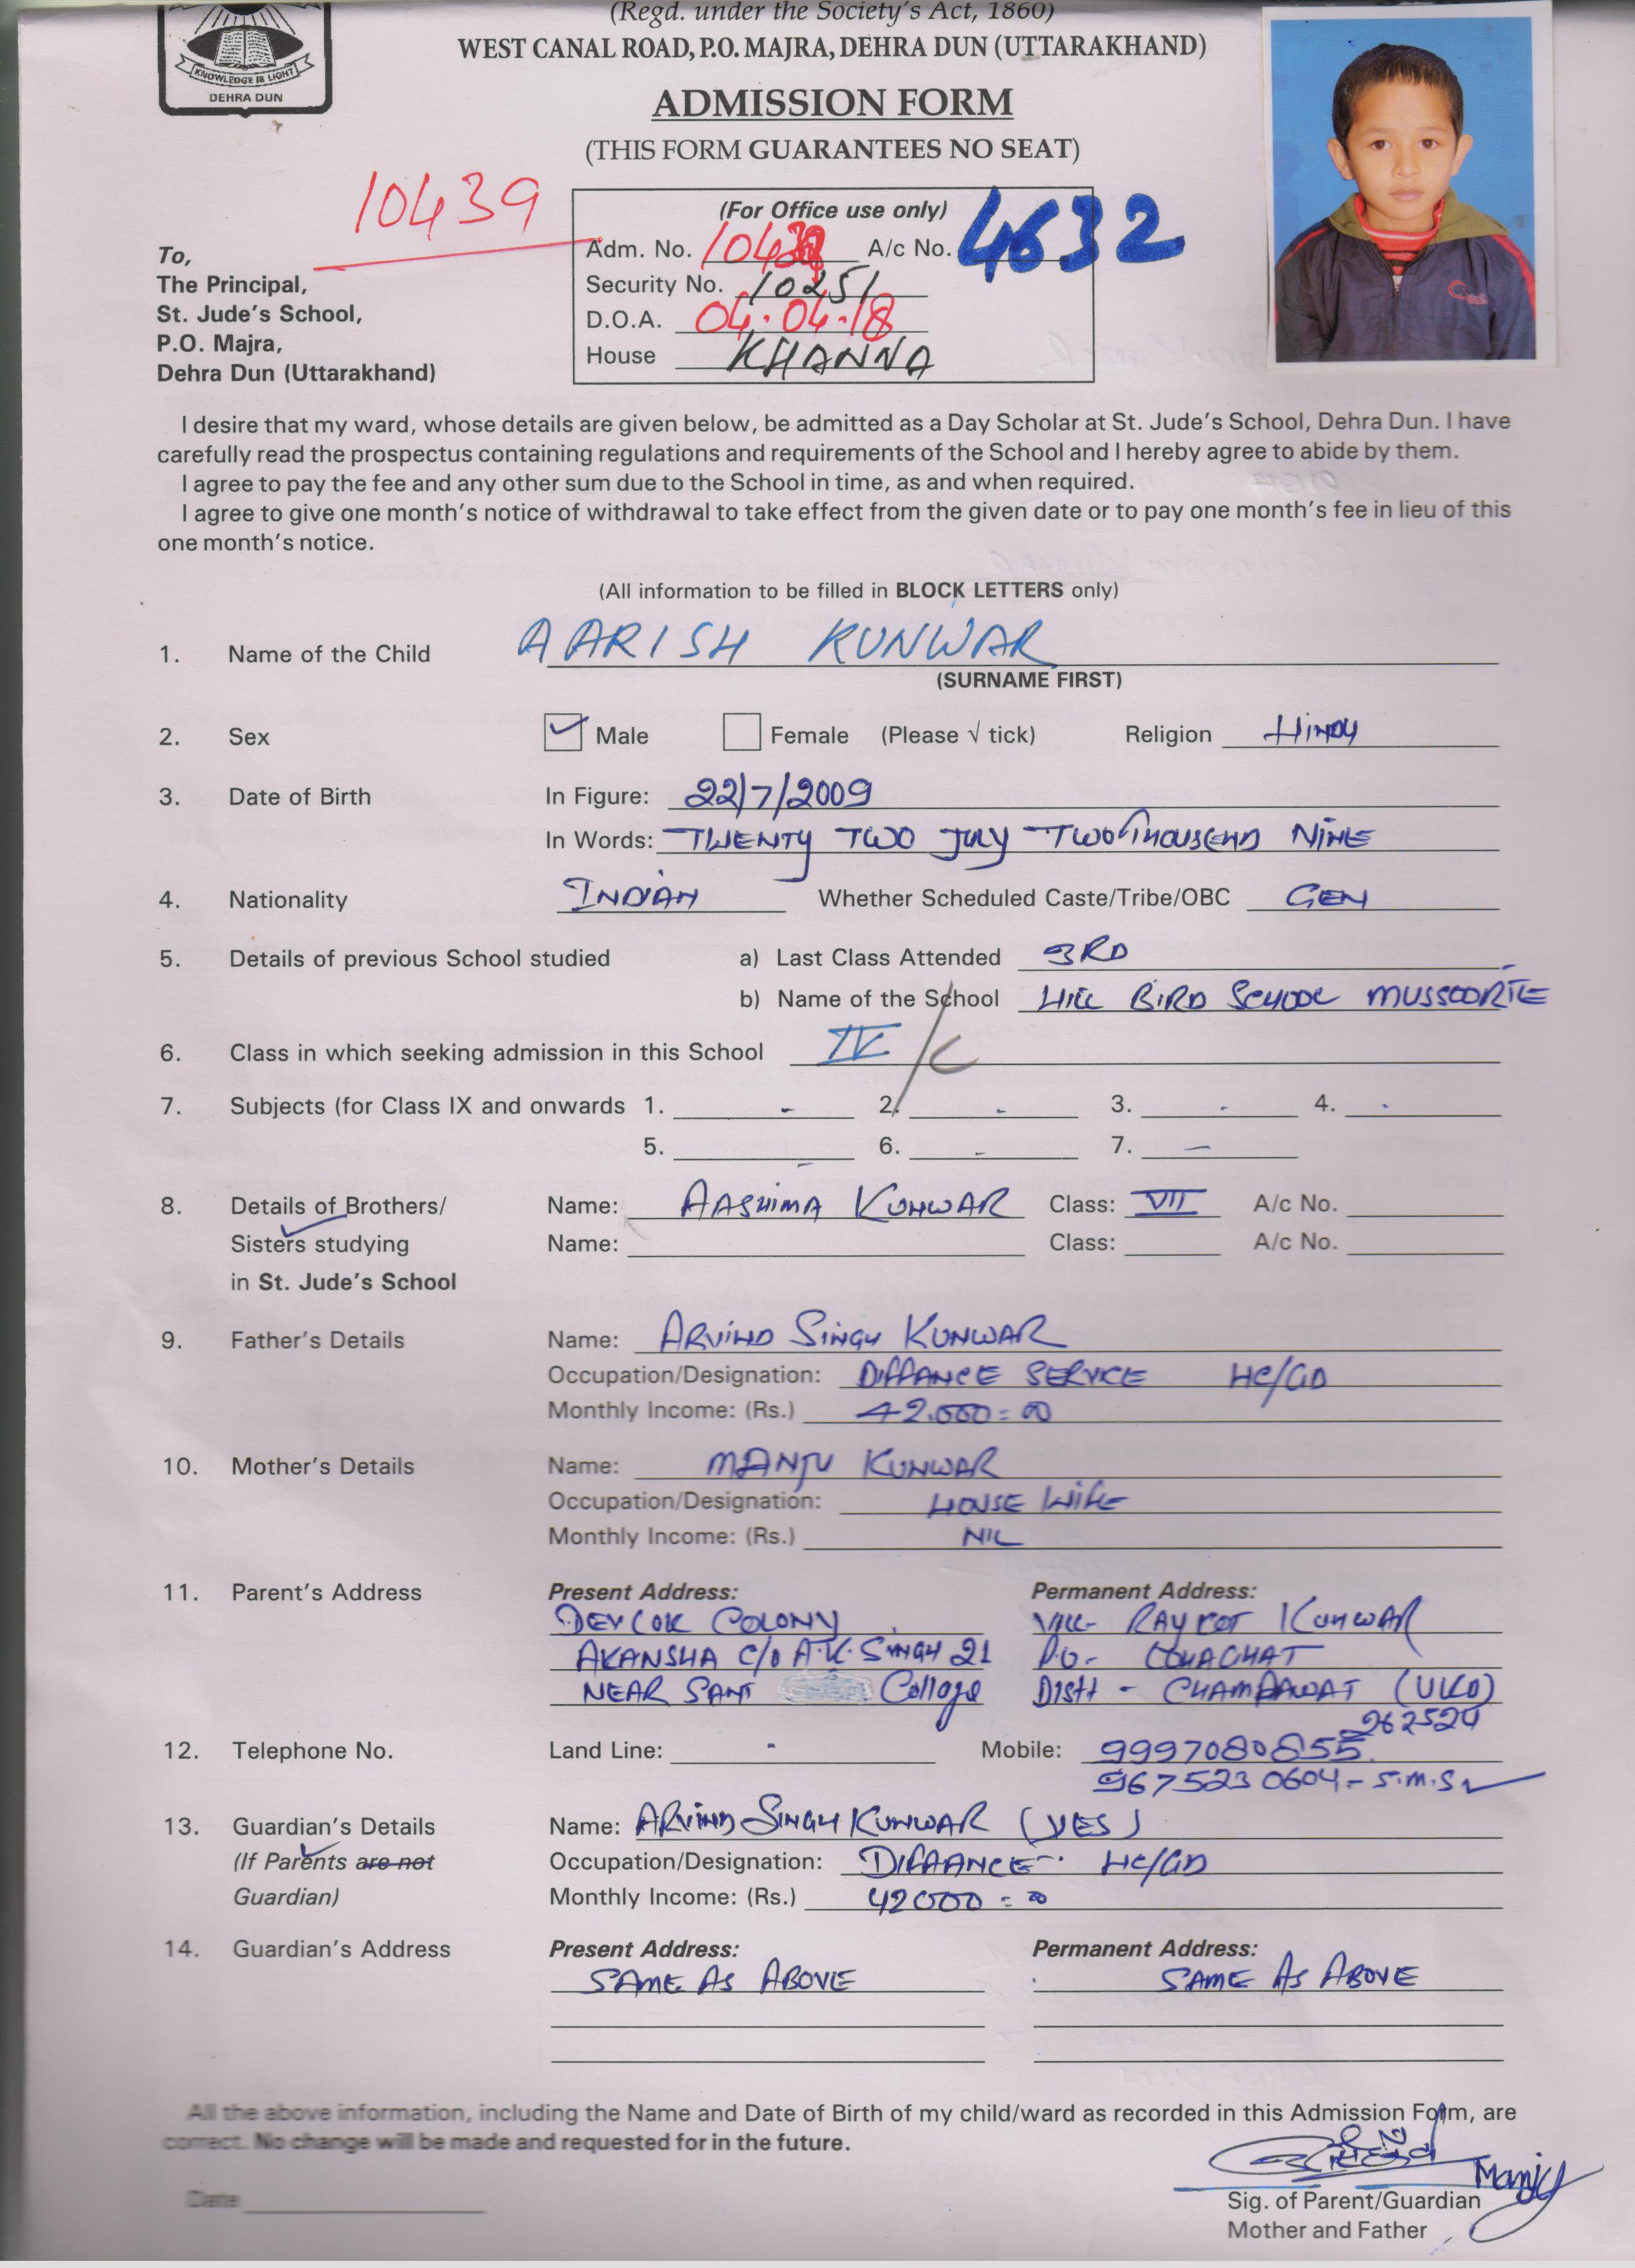 (Regd. under the Society's Act, 1860)
WEST CANAL ROAD, P.O. MAJRA, DEHRA DUN (UTTARAKHAND)
KNOWLEDGE IS LIGHT
DEHRA DUN
ADMISSION FORM
(THIS FORM GUARANTEES NO SEAT)
10439
(For Office use only)
Adm. No. A/c No. 4632
Security No. 10251
D.O.A. 04.04.18
House KHANNA
To,
The Principal,
St. Jude's School,
P.O. Majra,
Dehra Dun (Uttarakhand)
I desire that my ward, whose details are given below, be admitted as a Day Scholar at St. Jude's School, Dehra Dun. I have
carefully read the prospectus containing regulations and requirements of the School and I hereby agree to abide by them.
I agree to pay the fee and any other sum due to the School in time, as and when required.
I agree to give one month's notice of withdrawal to take effect from the given date or to pay one month's fee in lieu of this
one month's notice.
(All information to be filled in BLOCK LETTERS only)
1. Name of the Child AARISH KUNWAR
(SURNAME FIRST)
2. Sex Male Female (Please √ tick) Religion HINDU
3. Date of Birth In Figure: 22/7/2009
In Words: TWENTY TWO JULY TWO THOUSEND NINE
4. Nationality INDIAN Whether Scheduled Caste/Tribe/OBC GEN
5. Details of previous School studied a) Last Class Attended 3RD
b) Name of the School HILL BIRD SCHOOL MUSSOORIE
6. Class in which seeking admission in this School IV/C
7. Subjects (for Class IX and onwards 1. - 2. - 3. - 4. -
5. - 6. - 7. -
8. Details of Brothers/ Name: AASHIMA KUNWAR Class: VII A/c No.
Sisters studying Name: Class: A/c No.
in St. Jude's School
9. Father's Details Name: ARVIND SINGH KUNWAR
Occupation/Designation: DIFFANCE SERVICE HC/GD
Monthly Income: (Rs.) 42,000=00
10. Mother's Details Name: MANJU KUNWAR
Occupation/Designation: HOUSE WIFE
Monthly Income: (Rs.) NIL
11. Parent's Address Present Address: Permanent Address:
DEVLOK COLONY VILL- RAYKOT KUNWAR
AKANSHA C/O A.K. SINGH 21 P.O- LOHAGHAT
NEAR SANT College DISTT - CHAMPAWAT (UKD)
262524
12. Telephone No. Land Line: - Mobile: 9997080855
9675230604 - S.M.S
13. Guardian's Details Name: ARVIND SINGH KUNWAR (YES)
(If Parents are not Occupation/Designation: DIFAANCE HC/GD
Guardian) Monthly Income: (Rs.) 42000=00
14. Guardian's Address Present Address: Permanent Address:
SAME AS ABOVE SAME AS ABOVE
All the above information, including the Name and Date of Birth of my child/ward as recorded in this Admission Form, are
correct. No change will be made and requested for in the future.
Manju
Date
Sig. of Parent/Guardian
Mother and Father